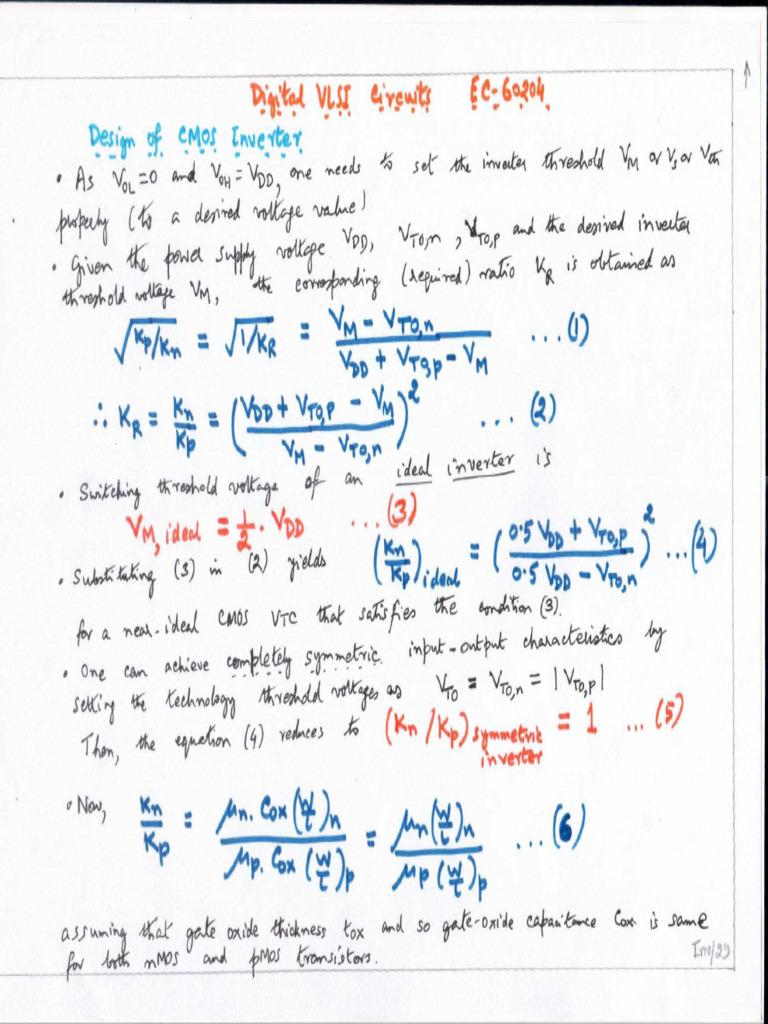 Digital VLSI Circuits EC-60204
Design of CMOS Inverter
• As V_OL = 0 and V_OH = V_DD, one needs to set the inverter threshold V_M or V_S or V_th
properly (to a desired voltage value)
• Given the power supply voltage V_DD, V_TO,n, V_TO,p and the desired inverter
threshold voltage V_M, the corresponding (required) ratio K_R is obtained as
√(Kp/Kn) = √(1/K_R) = (V_M - V_TO,n) / (V_DD + V_TO,p - V_M) ... (1)
∴ K_R = Kn/Kp = ((V_DD + V_TO,p - V_M) / (V_M - V_TO,n))^2 ... (2)
• Switching threshold voltage of an ideal inverter is
V_M, ideal = 1/2 . V_DD ... (3)
• Substituting (3) in (2) yields (Kn/Kp)_ideal = ((0.5 V_DD + V_TO,p) / (0.5 V_DD - V_TO,n))^2 ... (4)
for a near-ideal CMOS VTC that satisfies the condition (3).
• One can achieve completely symmetric input-output characteristics by
setting the technology threshold voltages as V_TO = V_TO,n = |V_TO,p|
Then, the equation (4) reduces to (Kn/Kp)_symmetric inverter = 1 ... (5)
• Now, Kn/Kp = (μn. Cox (W/L)n) / (μp. Cox (W/L)p) = (μn (W/L)n) / (μp (W/L)p) ... (6)
assuming that gate oxide thickness tox and so gate-oxide capacitance Cox is same
for both nMOS and pMOS transistors.